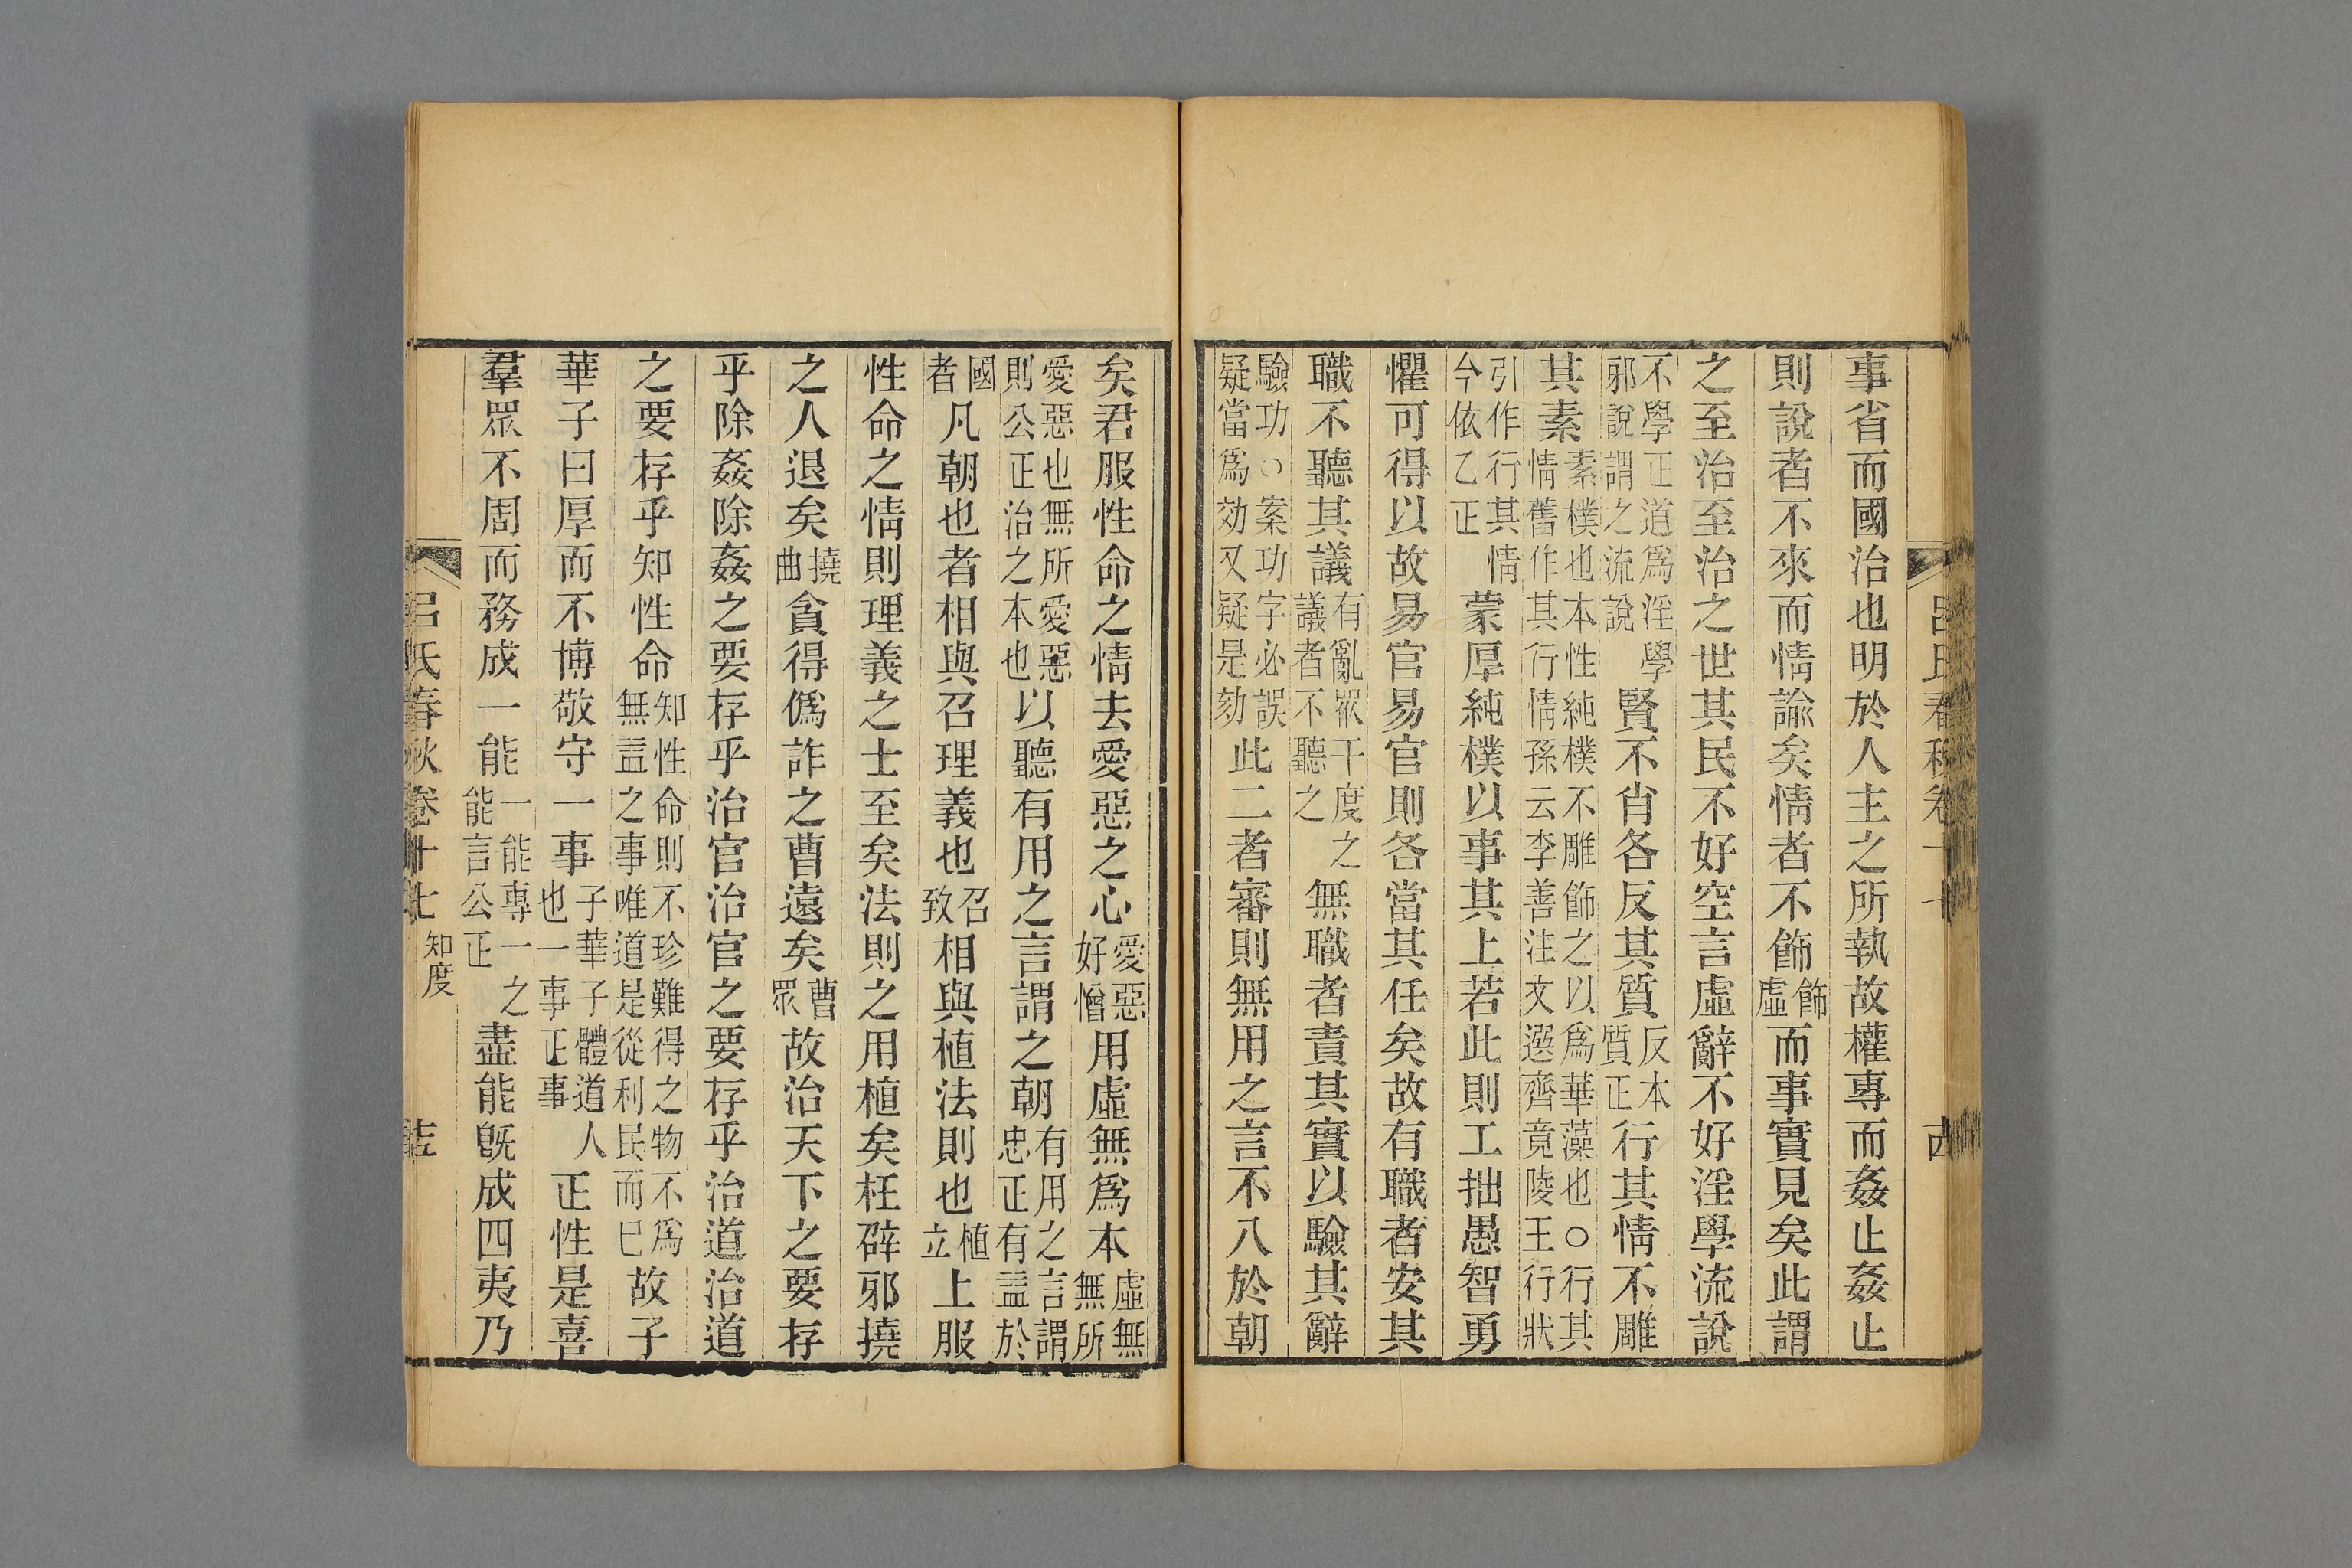 事省而國治也明於人主之所執故權專而姦止姦止
則說者不來而情諭矣情者不飾飾虛而事實見矣此謂
之至治至治之世其民不好空言虛辭不好淫學流說
不學正道爲淫學邪說謂之流說賢不肖各反其質反本質正行其情不雕
其素素樸也本性純樸不雕飾之以爲華藻也○行其情舊作其行情孫云李善注文選齊竟陵王行狀
引作行其情今依乙正蒙厚純樸以事其上若此則工拙愚智勇
懼可得以故易官易官則各當其任矣故有職者安其
職不聽其議有亂眾干度之議者不聽之無職者責其實以驗其辭
驗功○案功字必誤疑當爲効又疑是効此二者審則無用之言不入於朝
矣君服性命之情去愛惡之心愛惡好憎用虛無爲本虛無無所
愛惡也無所愛惡則公正治之本也以聽有用之言謂之朝有用之言謂忠正有益於
國者凡朝也者相與召理義也召致相與植法則也植立上服
性命之情則理義之士至矣法則之用植矣枉辟邪撓
之人退矣撓曲貪得僞詐之曹遠矣曹眾故治天下之要存
乎除姦除姦之要存乎治官治官之要存乎治道治道
之要存乎知性命知性命則不珍難得之物不爲無益之事唯道是從利民而已故子
華子曰厚而不博敬守一事子華子體道人也一事正事正性是喜
羣眾不周而務成一能一能專一之能言公正盡能既成四夷乃
呂氏春秋卷十七 知度 十五